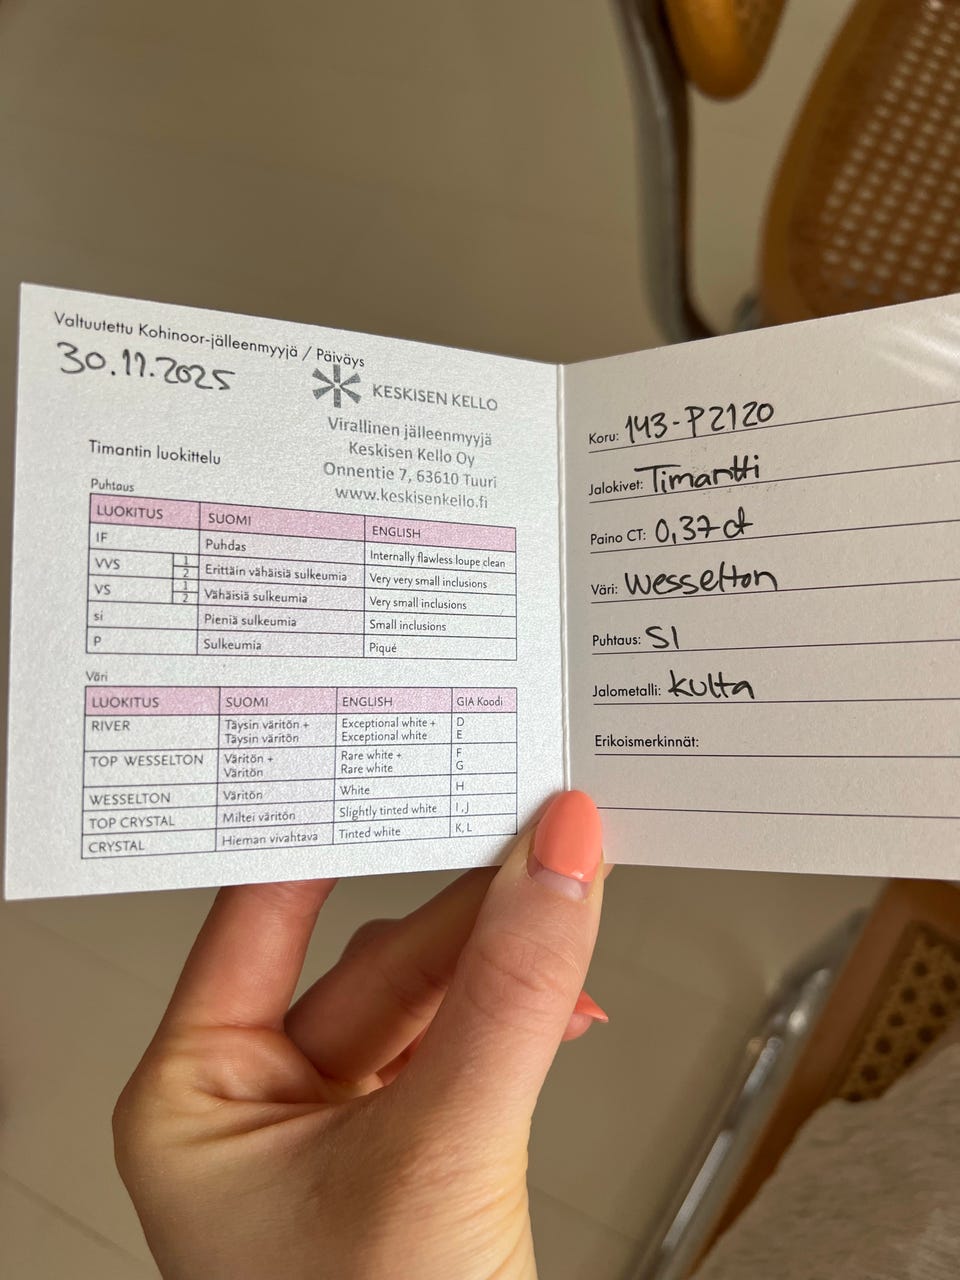 Valtuutettu Kohinoor-jälleenmyyjä / Päiväys
30.11.2025
KESKISEN KELLO
Virallinen jälleenmyyjä
Keskisen Kello Oy
Onnentie 7, 63610 Tuuri
www.keskisenkello.fi
Timantin luokittelu
Puhtaus
LUOKITUS SUOMI ENGLISH
IF Puhdas Internally flawless loupe clean
VVS 1 2 Erittäin vähäisiä sulkeumia Very very small inclusions
VS 1 2 Vähäisiä sulkeumia Very small inclusions
si Pieniä sulkeumia Small inclusions
P Sulkeumia Piqué
Väri
LUOKITUS SUOMI ENGLISH GIA Koodi
RIVER Täysin väritön + Exceptional white + D
Täysin väritön Exceptional white E
TOP WESSELTON Väritön + Rare white + F
Väritön Rare white G
WESSELTON Väritön White H
TOP CRYSTAL Miltei väritön Slightly tinted white I, J
CRYSTAL Hieman vivahtava Tinted white K, L
Koru: 143-P2120
Jalokivet: Timantti
Paino CT: 0,37 ct
Väri: Wesselton
Puhtaus: SI
Jalometalli: Kulta
Erikoismerkinnät: